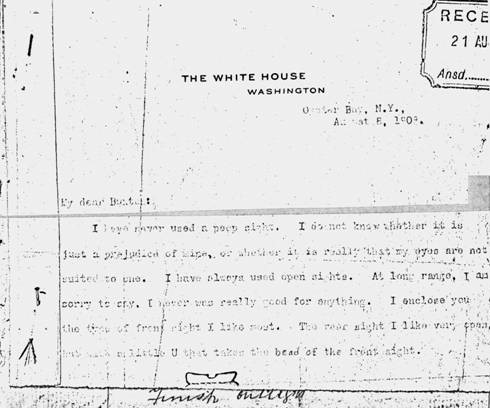 RECE
21 AU
Ansd.........
THE WHITE HOUSE
WASHINGTON
Oyster Bay, N.Y.,
August 8, 190
My dear
I have never used a peep sight. I do not know whether it is
just a prejudice of mine, or whether it is really that my eyes are not
suited to one. I have always used open sights. At long range, I am
sorry to say, I never was really good for anything. I enclose you
the type of front sight I like most. The rear sight I like very open,
but with a little U that takes the bead of the front sight.
Finish